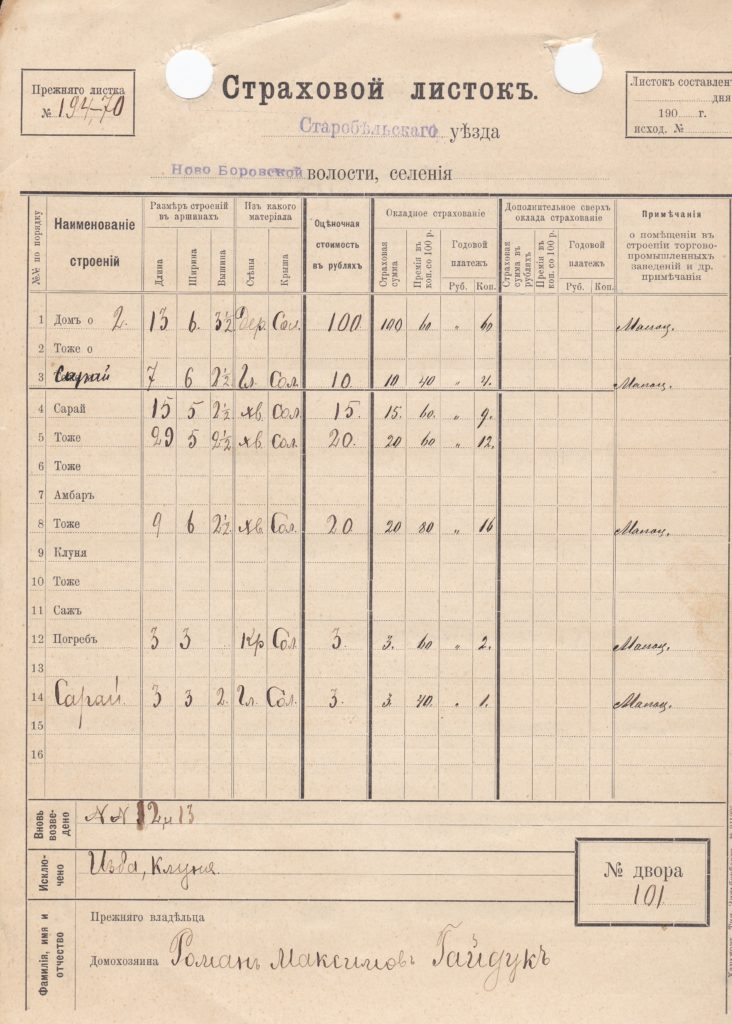 Прежняго листка
№ 194-70
Страховой листокъ.
Старобѣльскаго уѣзда
Ново Боровской волости, селенія
Листокъ составленъ
дня
190 г.
исход. №
№№ по порядку
Наименованіе строеній
Размѣръ строеній въ аршинахъ
Длина
Ширина
Вышина
Изъ какого матеріала
Стѣны
Крыша
Оцѣночная стоимость въ рубляхъ
Окладное страхованіе
Страховая сумма
Премія въ коп. со 100 р.
Годовой платежъ
Руб. Коп.
Дополнительное сверхъ оклада страхованіе
Страховая сумма въ рубляхъ
Премія въ коп. со 100 р.
Годовой платежъ
Руб. Коп.
Примѣчанія
о помѣщеніи въ строеніи торгово-промышленныхъ заведеній и др. примѣчанія
1 Домъ о 2. 13 6. 3½ Дер. Сол. 100 100 60 „ 60
2 Тоже о
3 Сарай 7 6 2½ Гл. Сол. 10. 10 40 „ 4.
4 Сарай 15 5 2½ хв. Сол. 15. 15. 60. „ 9.
5 Тоже 29 5 2½ хв. Сол. 20. 20 60 „ 12.
6 Тоже
7 Амбаръ
8 Тоже 9 6 2½ хв. Сол. 20 20 80 „ 16
9 Клуня
10 Тоже
11 Сажъ
12 Погребъ 3 3 Кр Сол. 3. 3. 60 „ 2.
13
14 Сарай. 3 3 2. Гл. Сол. 3. 3. 40. „ 1.
15
16
Вновь возведено
N N 12 и 13
Исключено
Изба, Клуня.
№ двора
101
Фамилія, имя и отчество
Прежняго владѣльца
Домохозяина Романъ Максимовъ Гайдукъ